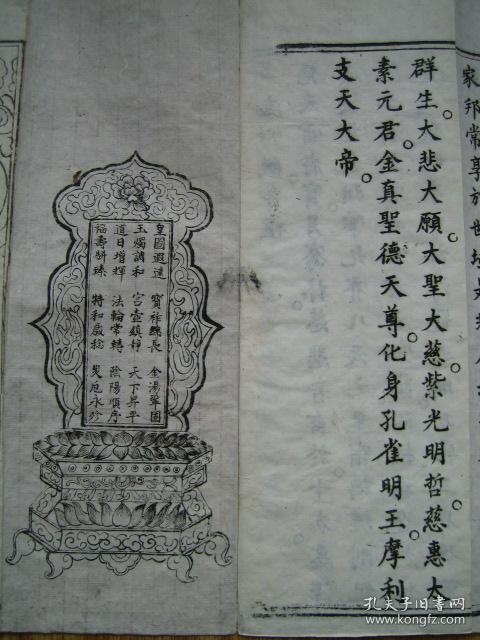 家邦常享於世
群生。大悲大願。大聖大慈。紫光明哲。慈惠太
素元君。金真聖德天尊。化身孔雀明王。摩利
支天大帝。
皇圖遐遠 寶祚綿長 金湯鞏固
玉燭調和 宮壼鎮靜 天下昇平
道日增輝 法輪常轉 陰陽順序
福壽駢臻 特和啟稔 災厄永殄
孔夫子旧書网
www.kongfz.com